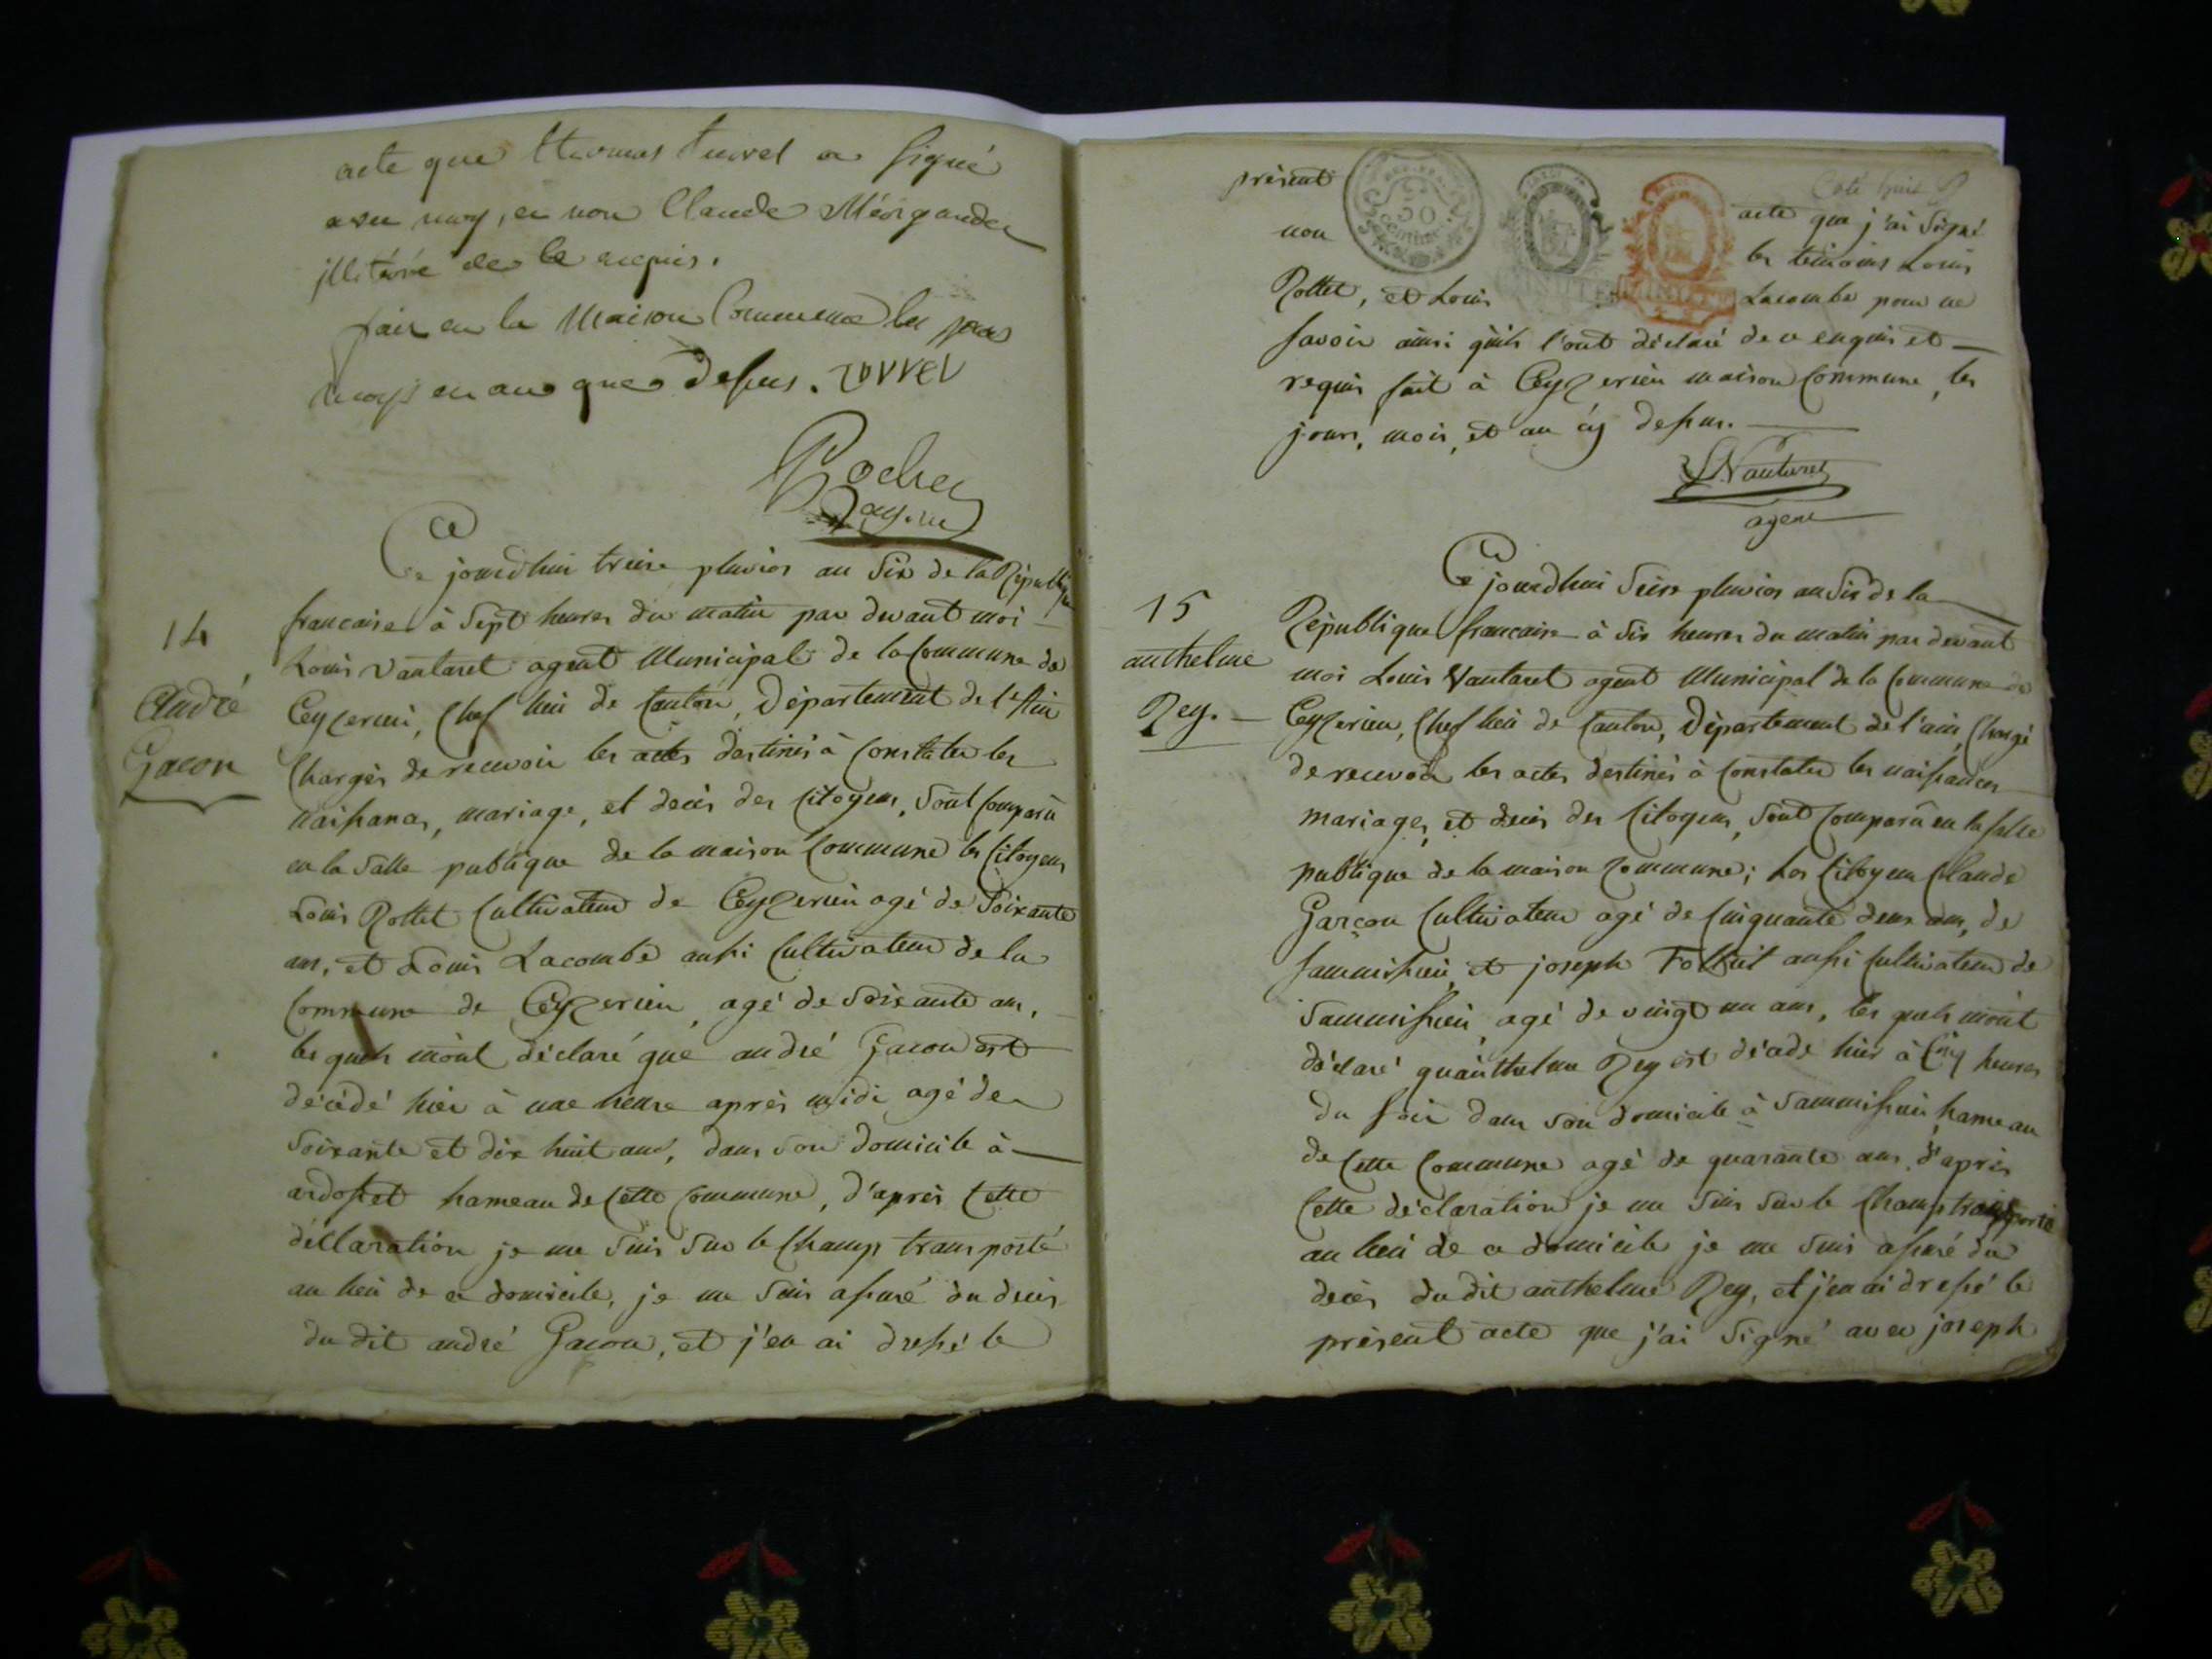 acte que thomas turrel a signé
avec moy, et non Claude Méorgandec
jlletéré de le requis.
fait en la Maison Commune les jour
moys en an que desus. turrel
Rochex
14
André
Gacon
Ce jourd'hui treise pluvios an Six de la République
francaise à Sept heures du matin par devant moi
Louis Vautaret agent Municipal de la Commune de
Ceyzerieu, Chef lieu de Canton, Département de l'Ain
Chargés de recevoir les actes destinés à Constater les
naissances, mariage, et décès des Citoyens, Sont Comparu
en la Salle publique de la maison Commune les Citoyens
Louis Rottet Cultivateur de Ceyzerieu agé de Soixante
ans, et Louis Lacombe aussi Cultivateur de la
Commune de Ceyzerieu, agé de Soixante ans,
les quels m'ont déclaré que andré Gacon est
décédé hier à une heure après midi agé de
Soixante et dix huit ans, dans Son domicile à
ardosset hameau de Cette Commune, d'après Cette
déclaration je me Suis Sur le Champ transporté
au lieu de ce domicile, je me Suis assuré du décès
du dit andré Gacon, et j'en ai dressé le
Coté huit
présent acte que j'ai Signé
non les témoins Louis
Rottet, et Louis Lacombe pour ne
Savoir ainsi qu'ils l'ont déclaré de ce enquis et
requis fait à Ceyzerieu maison Commune, les
jours, mois, et an cy dessus.
50
centimes
LVautaret
agent
15
anthelme
Rey.
Ce jourd'hui Seise pluvios an Six de la
République francaise à Six heures du matin par devant
moi Louis Vautaret agent Municipal de la Commune de
Ceyzerieu, Chef lieu de Canton, Département de l'ain, Chargé
de recevoir les actes destinés à Constater les naissances
mariages, et décès des Citoyens, Sont Comparu en la Salle
publique de la maison Commune; Les Citoyens Claude
Garçon Cultivateur agé de Cinquante deux ans, de
Sammissieu, et joseph aussi Cultivateur de
Sammissieu, agé de vingt un ans, les quels m'ont
déclaré qu'anthelme Rey est décédé hier à Cinq heures
du Soir dans Son domicile à Sammissieu, hameau
de Cette Commune agé de quarante ans, d'après
Cette déclaration je me Suis Sur le Champ transporté
au lieu de ce domicile je me Suis assuré du
décès du dit anthelme Rey, et j'en ai dressé le
présent acte que j'ai Signé avec joseph